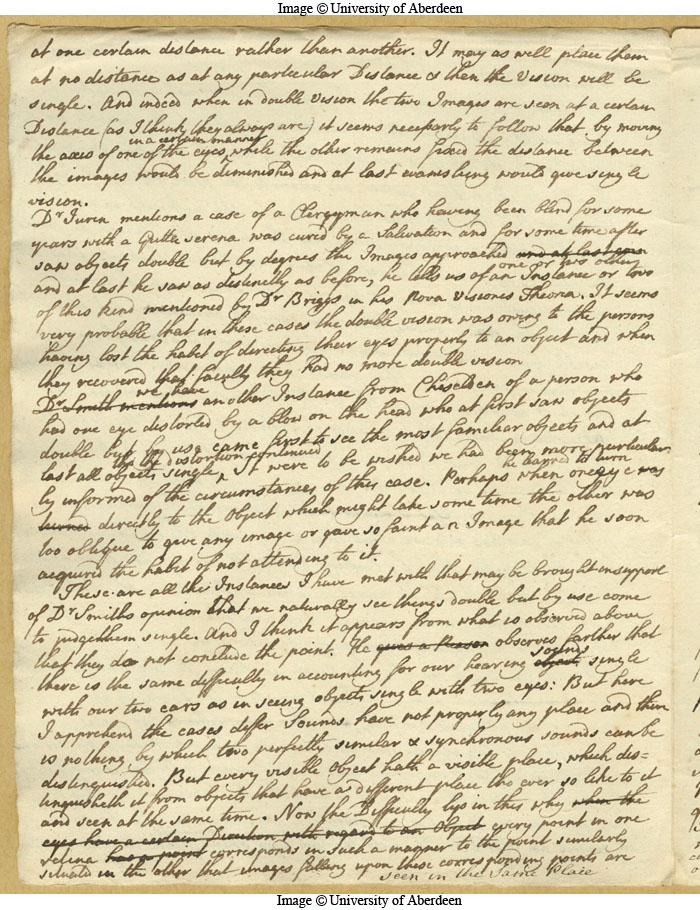 Image © University of Aberdeen
at one certain distance rather than another. It may as well place them
at no distance as at any particular Distance & then the Vision will be
single. And indeed when in double Vision the two Images are seen at a certain
Distance (as I think they always are) it seems necessarly to follow that, by moving
in a certain manner
the axes of one of the eyes, while the other remains fixed the distance between
the images would be diminished and at last evanishing would give single
vision.
Dr Jurin mentions a case of a Clergyman who having been blind for some
years with a Gutta serena was cured by a Salivation and for some time after
saw objects double but by degrees the Images approached and at last
and at last he saw as distinctly as before, he tells us of an Instance or two
of this kind mentioned by Dr Briggs in his Nova Visiones Theoria. It seems
very probable that in these cases the double vision was owing to the persons
having lost the habit of directing their eyes properly to an object and when
they recovered that faculty they had no more double vision
we have
Dr Smith mentions another Instance from Cheselden of a person who
had one eye distorted by a blow on the head who at first saw objects
double but by use came first to see the most familiar objects and at
tho the distortion continued
last all objects single, It were to be wished we had been more particular
he aimed to turn
ly informed of the circumstances of this case. Perhaps when one eye was
turned directly to the Object which might take some time the other was
too oblique to give any image or gave so faint an Image that he soon
acquired the habit of not attending to it.
These are all the Instances I have met with that may be brought in support
of Dr Smiths opinion that we naturally see things double but by use come
to judge them single. And I think it appears from what is observed above
that they do not conclude the point. He gives a Reason observes farther that
sounds
there is the same difficulty in accounting for our hearing objects single
with our two ears as in seeing objects single with two eyes: But here
I apprehend the cases differ Sounds have not properly any place and there
is nothing by which two perfectly similar & synchronous sounds can be
distinguished. But every visible Object hath a visible place, which dis=
tinguisheth it from objects that have a different place tho ever so like to it
and seen at the same time. Now the Difficulty lies in this why when the
eyes have a certain Direction with regard to an Object every point in one
retina has a point corresponds in such a manner to the point similarly
situated in the other that images falling upon these corresponding points are
seen in the same Place
Image © University of Aberdeen